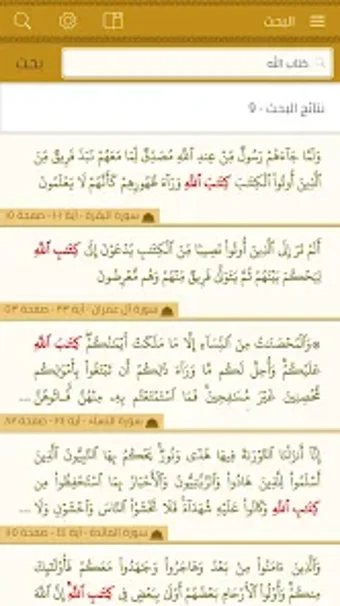 البحث
كتاب الله
بحث
نتائج البحث - 9
وَلَمَّا جَآءَهُمْ رَسُولٌ مِّنْ عِندِ ٱللَّهِ مُصَدِّقٌ لِّمَا مَعَهُمْ نَبَذَ فَرِيقٌ مِّنَ
ٱلَّذِينَ أُوتُوا۟ ٱلْكِتَٰبَ كِتَٰبَ ٱللَّهِ وَرَآءَ ظُهُورِهِمْ كَأَنَّهُمْ لَا يَعْلَمُونَ
سورة البقرة - آية ١٠١ - صفحة ١٥
أَلَمْ تَرَ إِلَى ٱلَّذِينَ أُوتُوا۟ نَصِيبًا مِّنَ ٱلْكِتَٰبِ يُدْعَوْنَ إِلَىٰ كِتَٰبِ ٱللَّهِ
لِيَحْكُمَ بَيْنَهُمْ ثُمَّ يَتَوَلَّىٰ فَرِيقٌ مِّنْهُمْ وَهُم مُّعْرِضُونَ
سورة آل عمران - آية ٢٣ - صفحة ٥٣
۞ وَٱلْمُحْصَنَٰتُ مِنَ ٱلنِّسَآءِ إِلَّا مَا مَلَكَتْ أَيْمَٰنُكُمْ ۖ كِتَٰبَ ٱللَّهِ
عَلَيْكُمْ ۚ وَأُحِلَّ لَكُم مَّا وَرَآءَ ذَٰلِكُمْ أَن تَبْتَغُوا۟ بِأَمْوَٰلِكُم
مُّحْصِنِينَ غَيْرَ مُسَٰفِحِينَ ۚ فَمَا ٱسْتَمْتَعْتُم بِهِۦ مِنْهُنَّ فَـَٔاتُوهُنَّ ...
سورة النساء - آية ٢٤ - صفحة ٨٢
إِنَّآ أَنزَلْنَا ٱلتَّوْرَىٰةَ فِيهَا هُدًى وَنُورٌ ۚ يَحْكُمُ بِهَا ٱلنَّبِيُّونَ ٱلَّذِينَ
أَسْلَمُوا۟ لِلَّذِينَ هَادُوا۟ وَٱلرَّبَّٰنِيُّونَ وَٱلْأَحْبَارُ بِمَا ٱسْتُحْفِظُوا۟ مِن
كِتَٰبِ ٱللَّهِ وَكَانُوا۟ عَلَيْهِ شُهَدَآءَ ۚ فَلَا تَخْشَوُا۟ ٱلنَّاسَ وَٱخْشَوْنِ وَلَا ...
سورة المائدة - آية ٤٤ - صفحة ١١٥
وَٱلَّذِينَ ءَامَنُوا۟ مِنۢ بَعْدُ وَهَاجَرُوا۟ وَجَٰهَدُوا۟ مَعَكُمْ فَأُو۟لَٰٓئِكَ
مِنكُمْ ۚ وَأُو۟لُوا۟ ٱلْأَرْحَامِ بَعْضُهُمْ أَوْلَىٰ بِبَعْضٍ فِى كِتَٰبِ ٱللَّهِ ۗ إِنَّ ٱللَّهَ